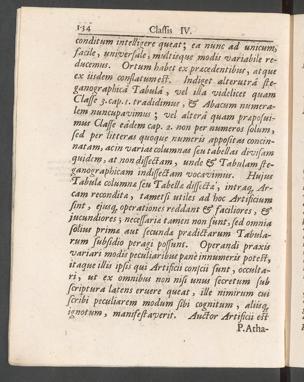 134 Classis IV.
conditum intelligere queat; ea nunc ad unicum,
facile, universale, multisque modis variabile re-
ducemus. Ortum habet ex præcedentibus, atque
ex iisdem conflatum est. Indiget alterutrâ ste-
ganographicâ Tabulâ, vel illa videlicet quam
Classe 3. cap. 1. tradidimus, & Abacum numera-
lem nuncupavimus; vel alterâ quam proposui-
mus Classe eâdem cap. 2. non per numeros solum,
sed per litteras quoque numeris appositas concin-
natam, ac in varias columnas seu tabellas divisam
quidem, at non dissectam, unde & Tabulam ste-
ganographicam indissectam vocavimus. Hujus
Tabulæ columnæ seu Tabellæ dissectæ, intraq, Ar-
cam recondita, tametsi utiles ad hoc Artificium
sint, ejusq, operationes reddant & faciliores, &
jucundiores; necessaria tamen non sunt, sed omnia
solius primæ aut secundæ prædictarum Tabula-
rum subsidio peragi possunt. Operandi praxis
variari modis peculiaribus pane innumeris potest,
itaque illis ipsis qui Artificii conscii sunt, occulta-
ri, ut ex omnibus non nisi unus secretum sub
scriptura latens eruere queat, ille nimirum cui
scribi peculiarem modum sibi cognitum, aliisq,
ignotum, manifestaverit. Auctor Artificii est
P. Atha-